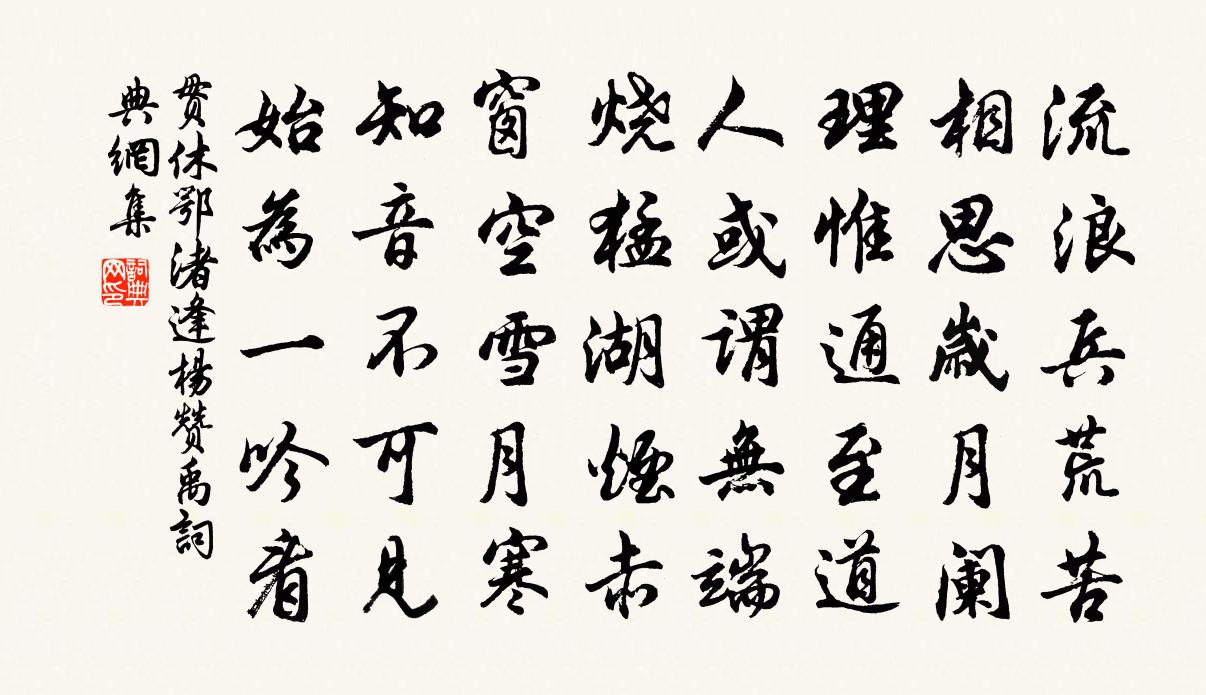 流浪兵荒苦
相思歲月闌
理惟通至道
人或謂無端
燒猛湖煙赤
窗空雪月寒
知音不可見
始為一吟看
貫休鄂渚逢楊贊禹詞
典網集
詞典網印